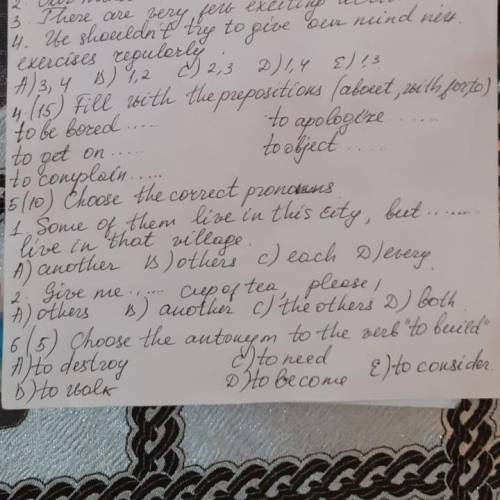 3. There are very few exciting
4. We shouldn't try to give our mind new
exercises regularly.
A) 3, 4 B) 1,2 C) 2,3 D) 1,4 E) 1,3
4.(15) Fill with the prepositions (about, with, for, to)
to be bored ..... to apologize ......
to get on ..... to object ......
to complain .....
5(10) Choose the correct pronouns
1. Some of them live in this city, but .......
live in that village.
A) another B) others C) each D) every
2. Give me ...... cup of tea, please!
A) others B) another C) the others D) both
6(5) Choose the antonym to the verb "to build"
A) to destroy C) to need E) to consider
B) to walk D) to become